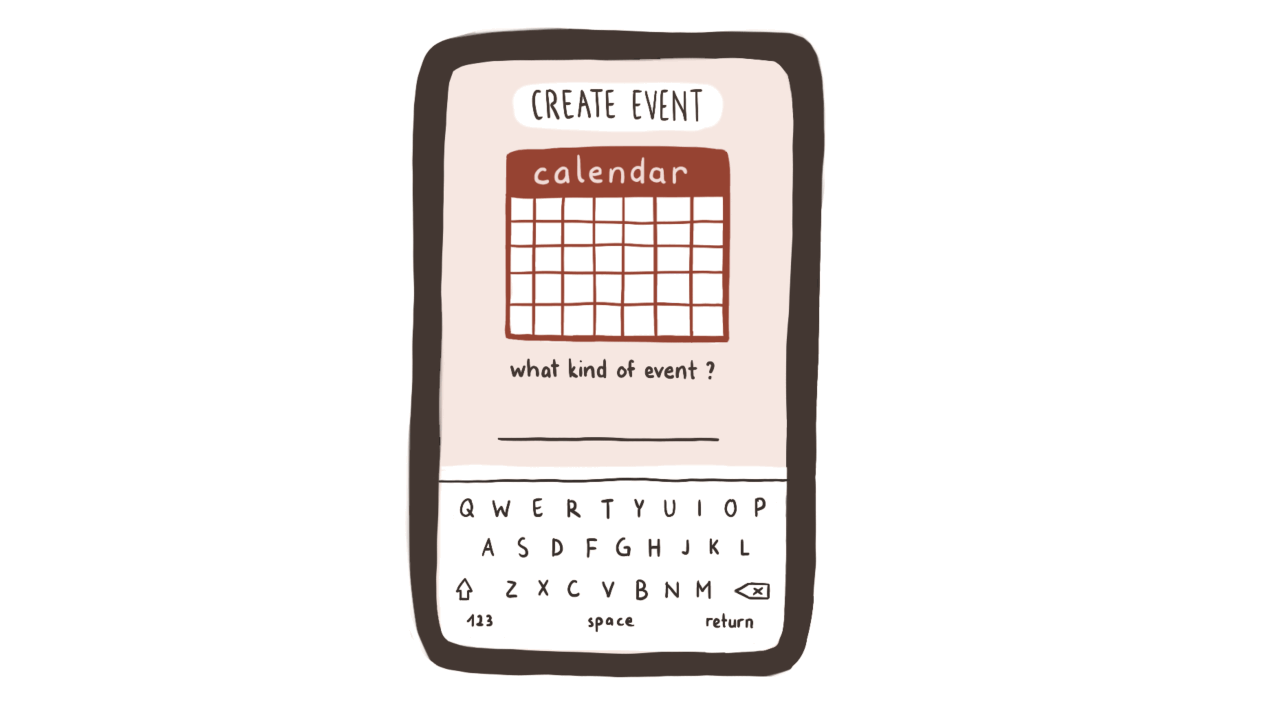 CREATE EVENT
calendar
what kind of event ?
Q W E R T Y U I O P
A S D F G H J K L
Z X C V B N M
123 space return